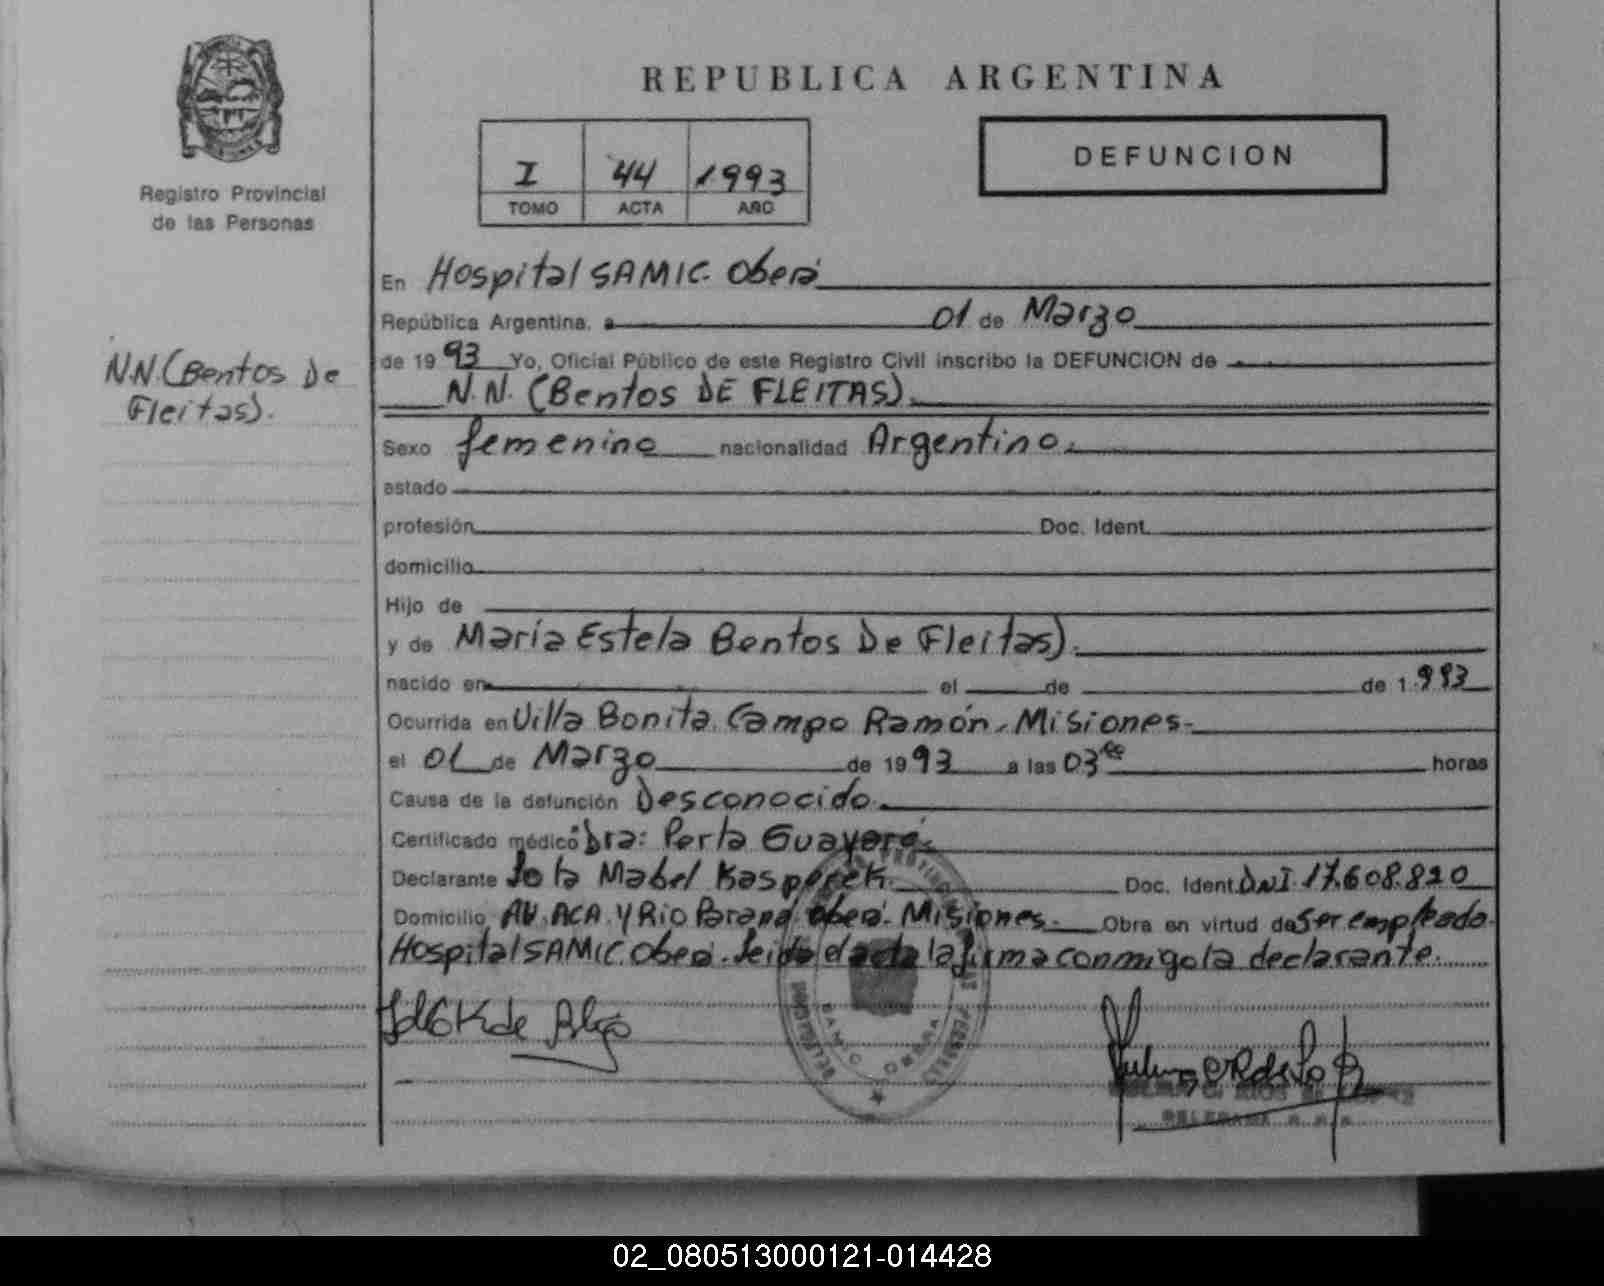 REPUBLICA ARGENTINA
Registro Provincial
de las Personas
I 44 1993
TOMO ACTA AÑO
DEFUNCION
N.N. (Bentos De
Fleitas).
En Hospital SAMIC. Oberá
República Argentina, a 01 de Marzo
de 1993 Yo, Oficial Público de este Registro Civil inscribo la DEFUNCION de
N.N. (Bentos DE FLEITAS).
Sexo femenino nacionalidad Argentino.
estado
profesión Doc. Ident.
domicilio
Hijo de
y de María Estela Bentos De Fleitas).
nacido en el de de 1.993
Ocurrida en Villa Bonita. Campo Ramón. Misiones-
el 01 de Marzo de 1993 a las 03 horas
Causa de la defunción Desconocido.
Certificado médico Dra: Perla
Declarante Mabel Kasparek. Doc. Ident. DNI. 17.608.820
Domicilio AV. ACA. Y Rio Paraná Oberá. Misiones.- Obra en virtud de Ser empleada
Hospital SAMIC. Oberá. Leida el acta la firma conmigo la declarante.
SAMIC OBERA
02_080513000121-014428